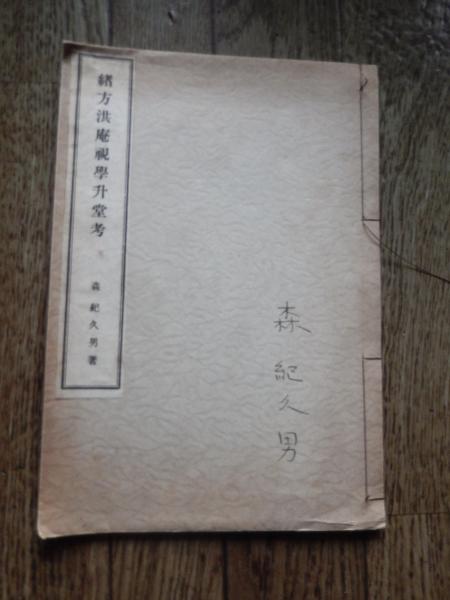 緒方洪庵視學升堂考
森紀久男著
森紀久男